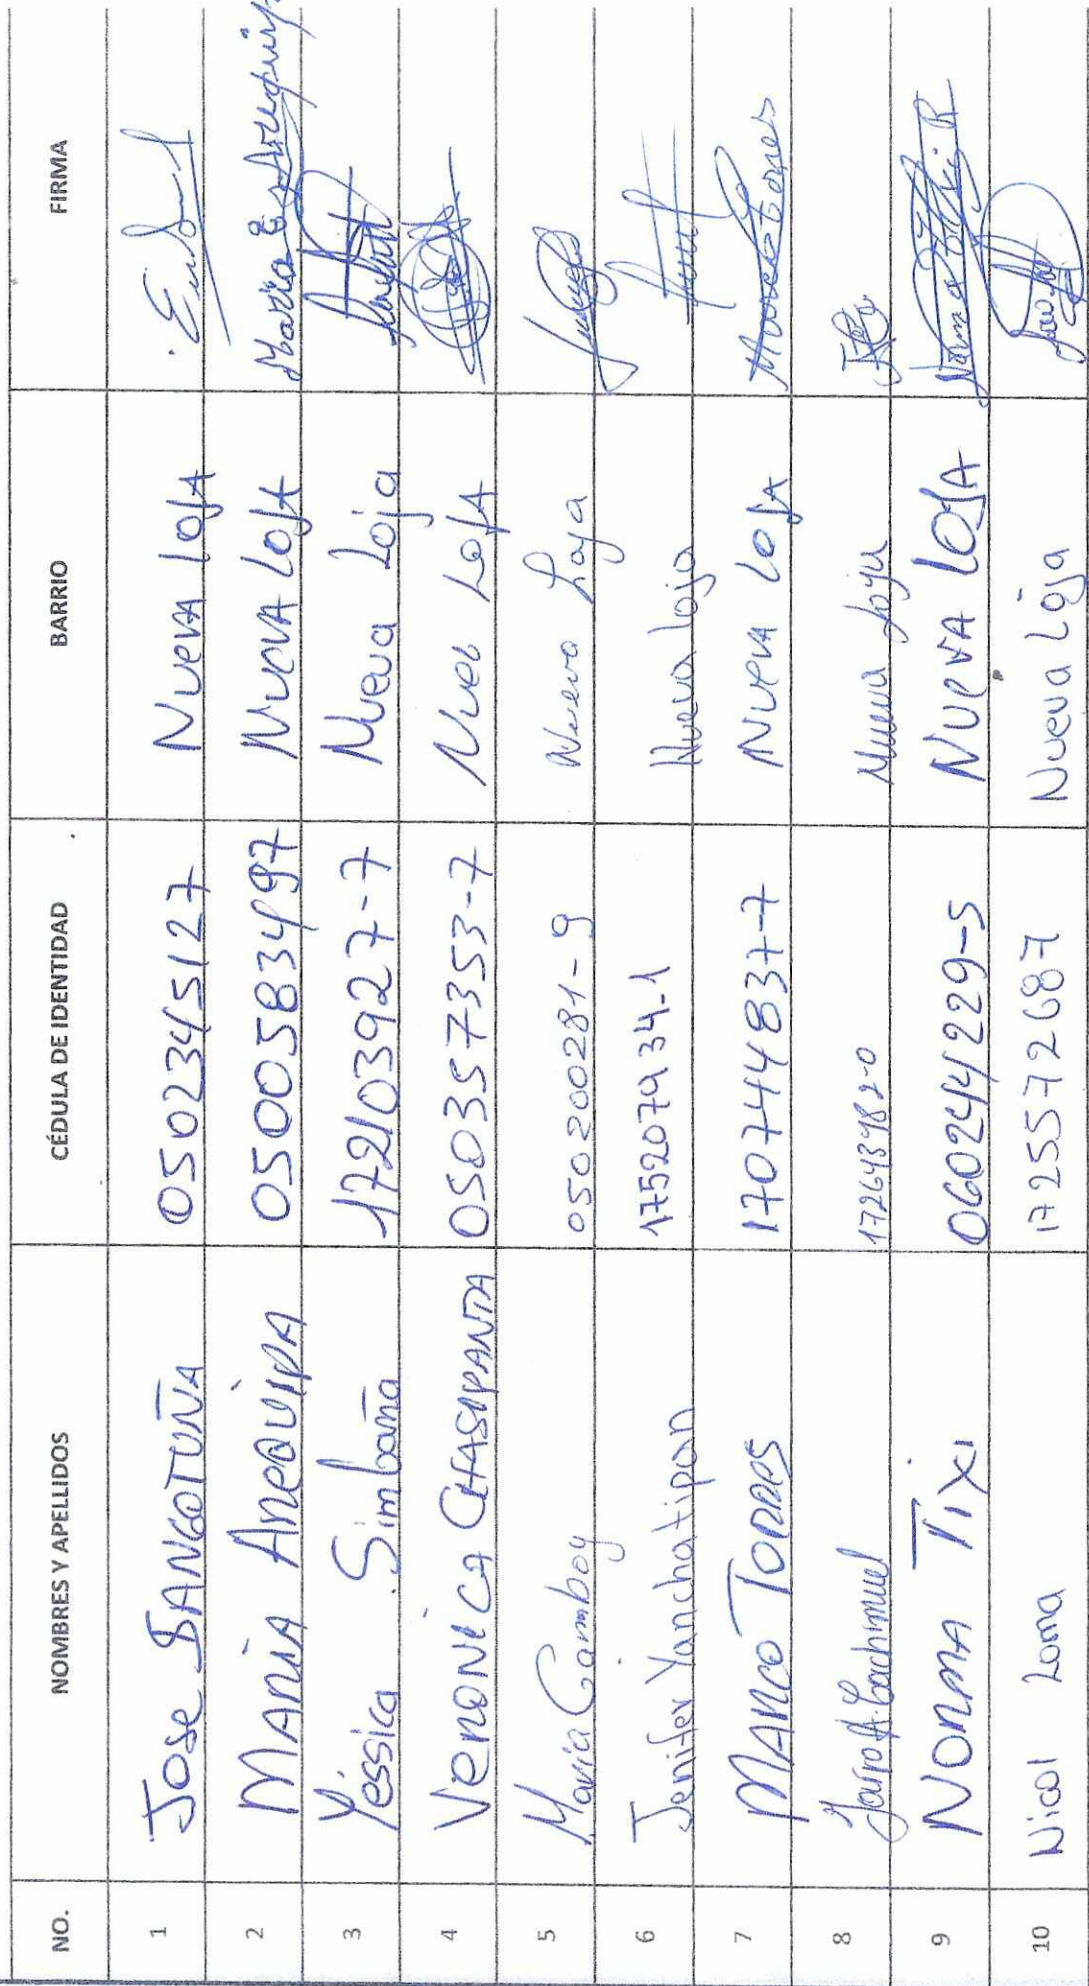 NO. NOMBRES Y APELLIDOS CÉDULA DE IDENTIDAD BARRIO FIRMA
1 Jose BANGOTUÑA 0502345127 Nueva LoJA
2 MARIA AReQUIPA 0500583497 NUeVA LoJA
3 Yessica Simbaña 172103927-7 Nueva Loja
4 VeRONICA CHASIPANTA 050357353-7 Nuev LoJA
5 Maria Gamboy 050200281-9 Nuevo Loja
6 Jenifer Yanchatipan 175207934-1 Nueva loja
7 MARCO TORRES 170744837-7 NUeVA LoJA Marco Torres
8 Jairo A. Cachimuel 172643982-0 Nueva Loja
9 NORMA TIXI 060244229-5 NUeVA LOJA
10 Nicol Loma 1725572687 Nueva Loja